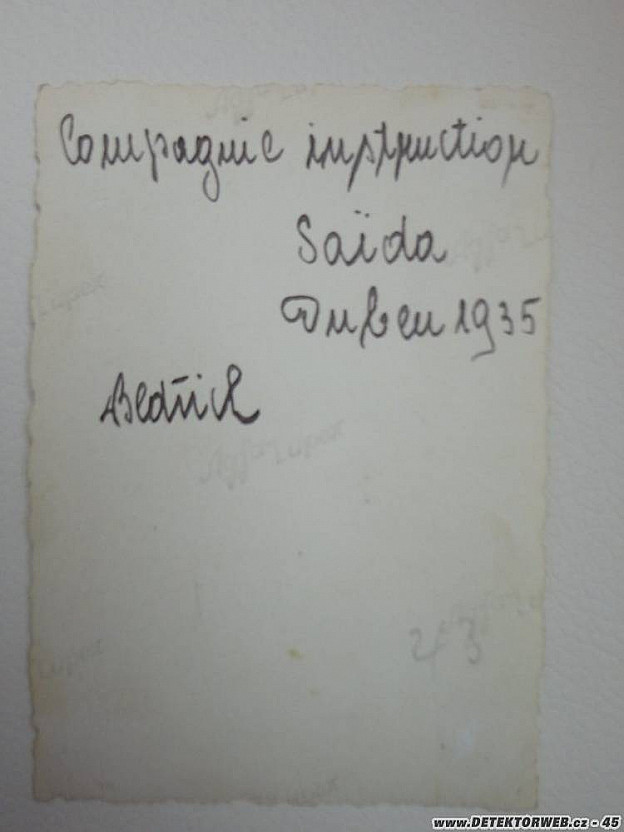 Compagnie instruction
Saïda
Duben 1935
Bedřich
Agfa Lupex
23
www.DETEKTORWEB.cz - 45